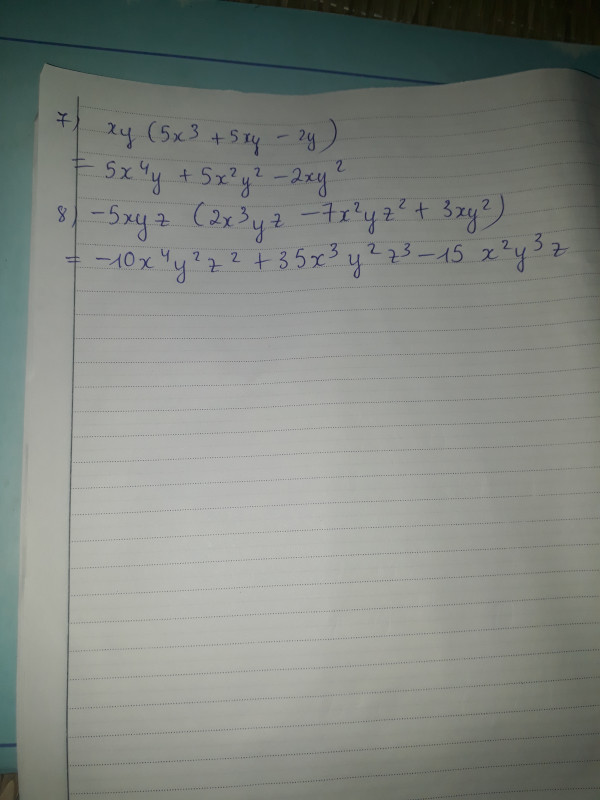 7) xy (5x³ + 5xy - 2y)
= 5x⁴y + 5x²y² - 2xy²
8) -5xyz (2x³yz - 7x²yz² + 3xy²)
= -10x⁴y²z² + 35x³y²z³ - 15 x²y³z